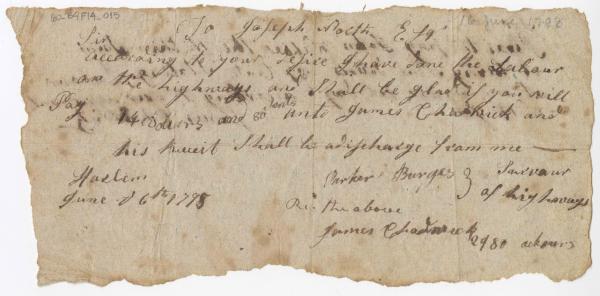 62-B4F14-015
16 June 1798
To Joseph North Esqr
Sir
according to your desire I have done the Labour
on the highways and Shall be glad if you will
Pay 14 Dolers and 80 cents unto James Chadwick and
his Receit Shall be a discharge from me
Harlem
June 16th 1798
Parker Burges } Survaur of highways
Re the above
James Chadwick
2980